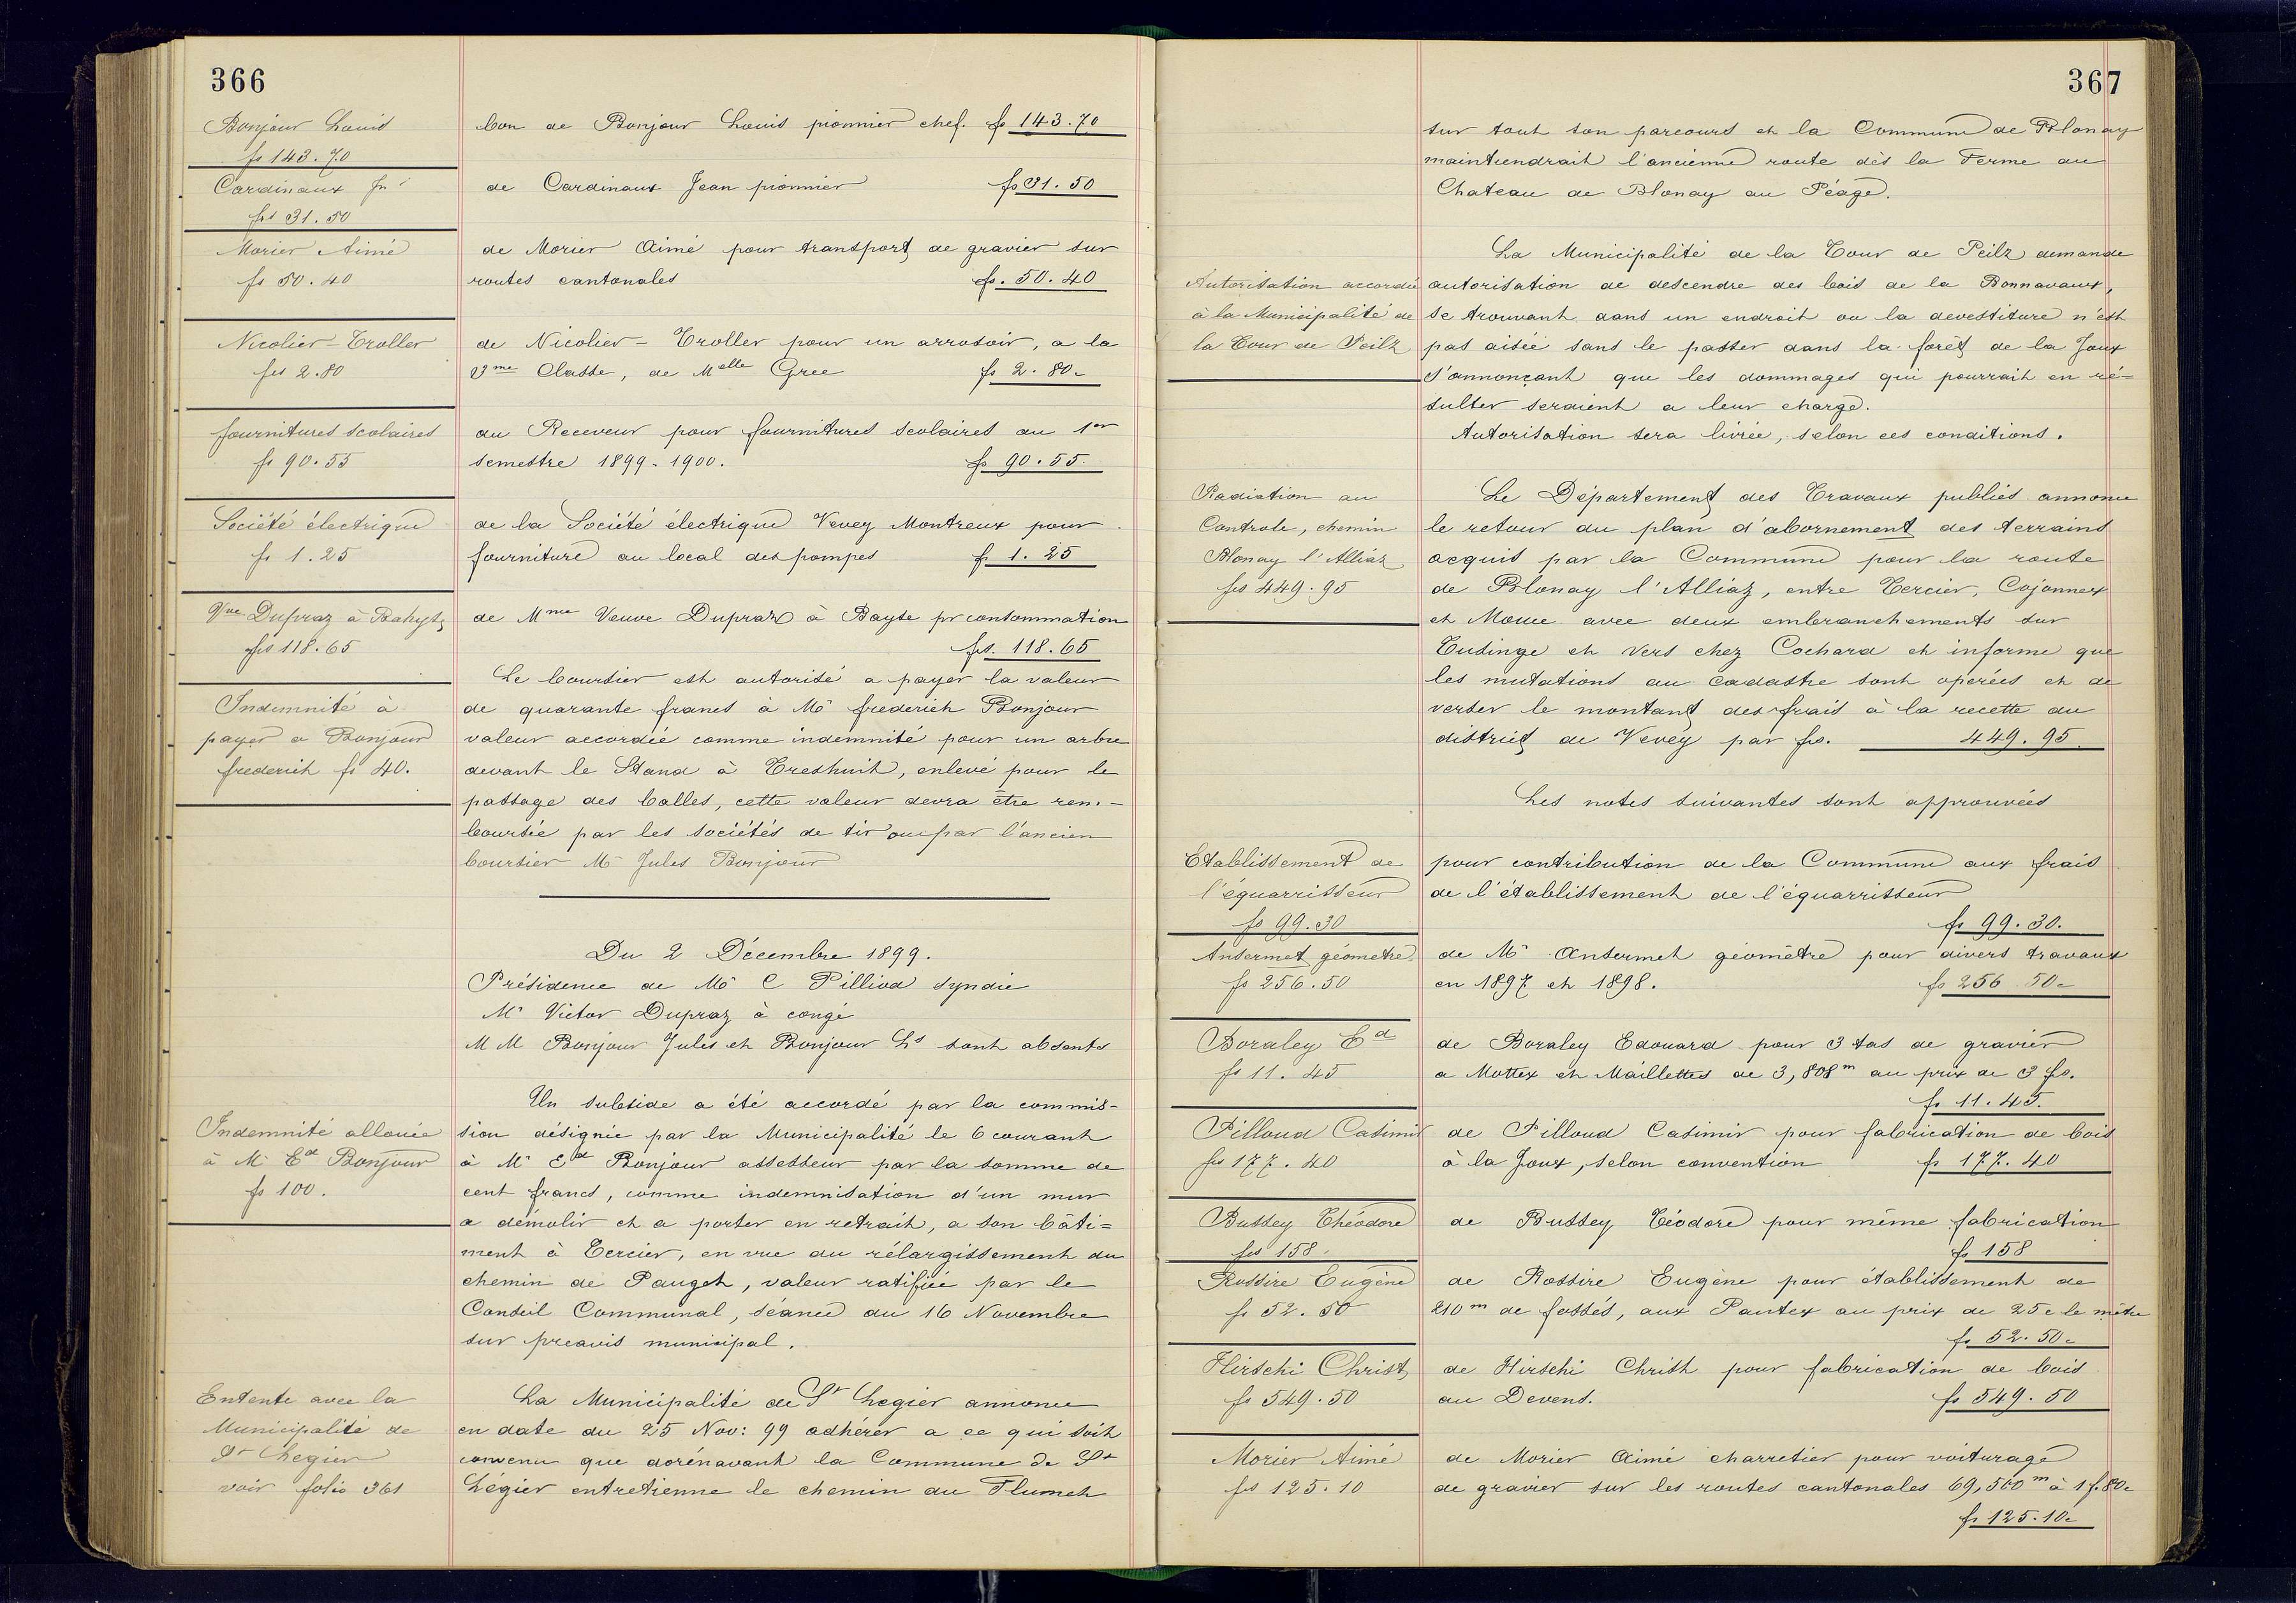 366
Bonjour Louis
fs 143.70
bon de Bonjour Louis pionnier chef. fs 143.70
Cardinaux Jn
frs 31.50
de Cardinaux Jean pionnier fs 31.50
Morier Aimé
fs 50.40
de Morier Aimé pour transport de gravier sur
routes cantonales fs. 50.40
Nicolier-Troller
frs 2.80
de Nicolier-Troller pour un arrosoir, a la
3me Classe, de Melle Gree fs 2.80.
fournitures scolaires
fs 90.55
du Receveur pour fournitures scolaires au 1er
semestre 1899-1900. fs 90.55.
Société électrique
fs 1.25
de la Société électrique Vevey Montreux pour
fourniture au local des pompes fs 1.25
Vve Dupraz à Bahyse
frs 118.65
de Mme Veuve Dupraz à Bayse pr consommation
frs. 118.65
Indemnité à
payer a Bonjour
frederich fs 40.
Le boursier est autorisé a payer la valeur
de quarante francs à Mr frederich Bonjour
valeur accordée comme indemnité pour un arbre
devant le Stand à Treshuit, enlevé pour le
passage des balles, cette valeur devra être rem-
boursée par les sociétés de tir ou par l'ancien
boursier Mr Jules Bonjour
Du 2 Décembre 1899.
Présidence de Mr C Pilliod syndic
Mr Victor Dupraz à congé
MM Bonjour Jules et Bonjour Ls sont absents
Indemnité allouée
à Mr Ed Bonjour
fs 100.
Un subside a été accordé par la commis-
sion désignée par la Municipalité le 6 courant
à Mr Ed Bonjour assesseur par la somme de
cent francs, comme indemnisation d'un mur
a démolir et a porter en retrait, a son bâti=
ment à Tercier, en vue du rélargissement du
chemin de Pauget, valeur ratifiée par le
Conseil Communal, séance du 16 Novembre
sur preavis municipal.
Entente avec la
Municipalité de
St Legier
voir folio 361
La Municipalité de St Legier annonce
en date du 25 Nov: 99 adhérer a ce qui soit
convenu que dorénavant la Commune de St
Légier entretienne le chemin du Flumet
367
sur tout son parcours et la Commune de Blonay
maintiendrait l'ancienne route dès la Ferme au
Chateau de Blonay au Péage.
Autorisation accordée
à la Municipalité de
la Tour de Peilz
La Municipalité de la Tour de Peilz demande
autorisation de descendre des bois de la Bonnavaux,
se trouvant dans un endroit ou la devestiture n'est
pas aisée sans le passer dans la forêt de la Joux
s'annonçant que les dommages qui pourrait en ré=
sulter seraient a leur charge.
Autorisation sera livrée, selon ces conditions.
Radiation au
Controle, chemin
Blonay l'Alliaz
frs 449.95
Le Département des Travaux publics annonce
le retour du plan d'abornement des terrains
acquis par la Commune pour la route
de Blonay l'Alliaz, entre Tercier, Cojonnex
et Mouce avec deux embranchements sur
Tudinge et Vers chez Cochard et informe que
les mutations au Cadastre sont opérées et de
verser le montant des frais à la recette du
district de Vevey par fs. 449.95.
Les notes suivantes sont approuvées
Etablissement de
l'équarrisseur
fs 99.30
pour contribution de la Commune aux frais
de l'établissement de l'équarrisseur
fs 99.30.
Ansermet géometre
fs 256.50
de Mr Ansermet géomètre pour divers travaux
en 1897 et 1898. fs 256 50.
Boraley Ed
fs 11.45
de Boraley Edouard pour 3 tas de gravier
a Mottex et Maillettes de 3,808m au prix de 3 fs.
fs 11.45.
Pilloud Casimir
frs 177.40
de Pilloud Casimir pour fabrication de bois
à la Joux, selon convention fs 177.40
Bussey Théodore
frs 158.
de Bussey Téodore pour même fabrication
fs 158
Rossire Eugène
fs 52.50
de Rossire Eugène pour établissement de
210m de fossés, aux Pautex au prix de 25c le mètre
fs 52.50.
Hirschi Christ
fs 549.50
de Hirschi Christ pour fabrication de bois
au Devens. fs 549.50
Morier Aimé
frs 125.10
de Morier Aimé charretier pour voiturage
de gravier sur les routes cantonales 69,500m à 1 f.80c
fs 125.10.